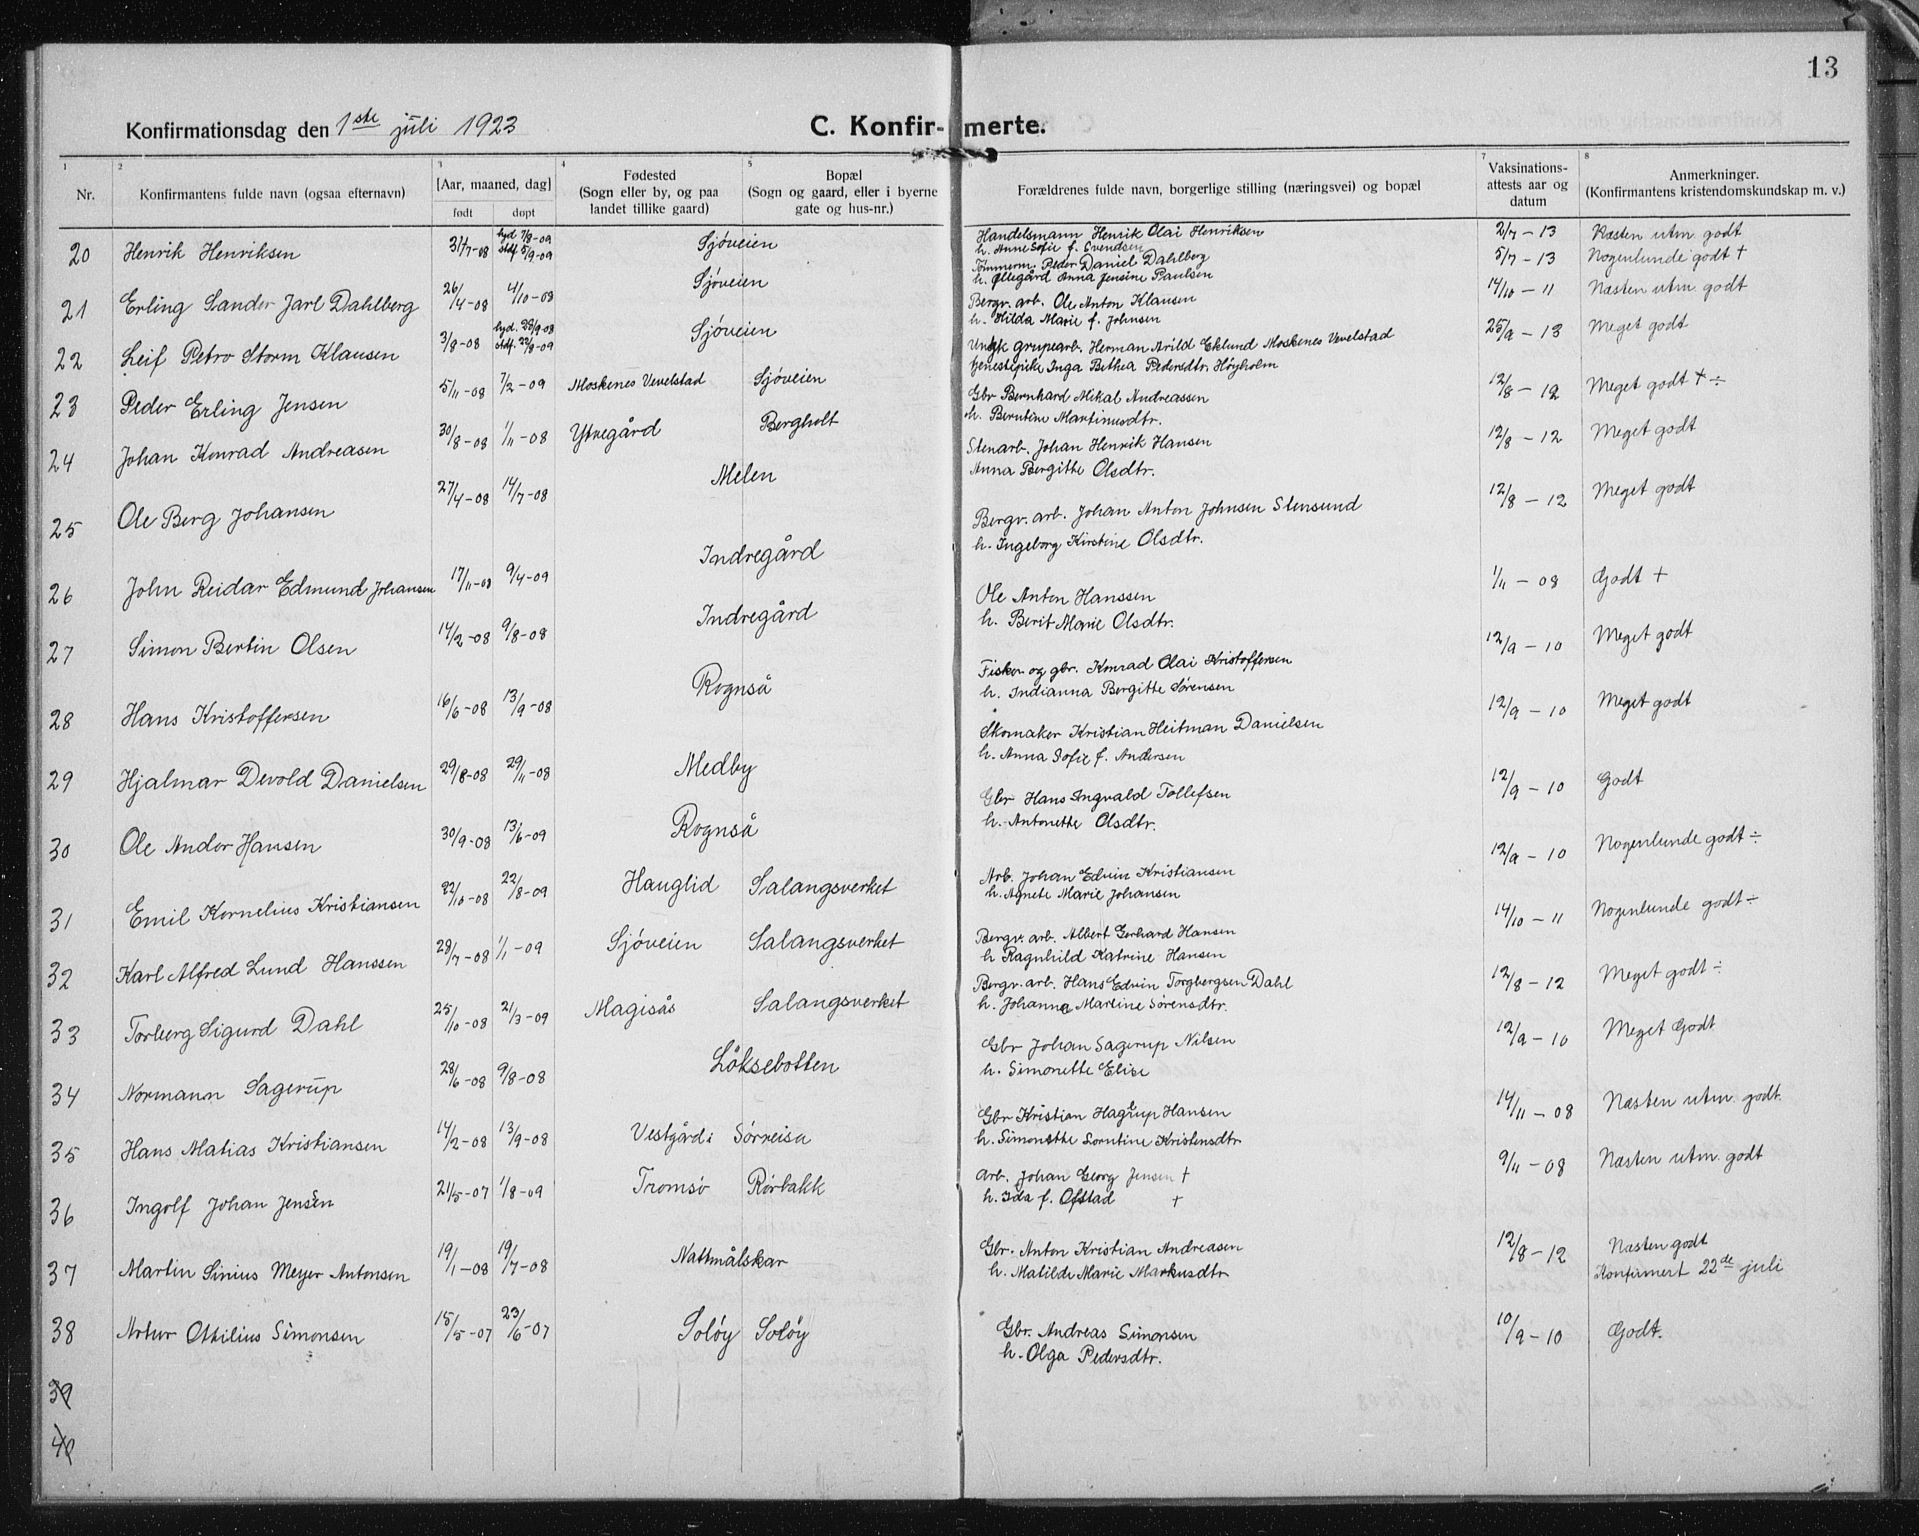 13
Konfirmationsdag den 1ste juli 1923 C. Konfirmerte.
1 2 3 4 5 6 7 8
Nr. Konfirmantens fulde navn (ogsaa efternavn) [Aar, maaned, dag] født døpt Fødested (Sogn eller by, og paa landet tillike gaard) Bopæl (Sogn og gaard, eller i byerne gate og hus-nr.) Forældrenes fulde navn, borgerlige stilling (næringsvei) og bopæl Vaksinations-attests aar og datum Anmerkninger. (Konfirmantens kristendomskundskap m. v.)
20 Henrik Henriksen 31/7-08 hjd 7/8-09 stdf. 5/9-09 Sjøveien Handelsmann Henrik Olai Henriksen h. Anne Sofie f. Evendsen 2/7-13 Næsten utm. godt
21 Erling Sander Jarl Dahlberg 26/4-08 4/10-08 Sjøveien Tömmerm. Peder Daniel Dahlberg h. Ollegård Anna Jensine Paulsen 5/7-13 Nogenlunde godt +
22 Leif Petro Storm Klausen 3/8-08 hjd. 23/9-08 stdf. 22/8-09 Sjøveien Bergv. arb. Ole Anton Klausen h. Hilda Marie f. Johnsen 14/10-11 Næsten utm. godt
23 Peder Erling Jensen 5/11-08 7/2-09 Moskenes Vevelstad Sjøveien Ungk grupearb. Herman Arild Eklund Moskenes Vevelstad Tjenestepike Inga Bethea Pedersdtr. Höyholm 25/9-13 Meget godt
24 Johan Konrad Andreasen 30/8-08 1/11-08 Ytregård Bergholt Gbr Bernhard Mikal Andreassen h. Berntine Martinusdtr. 12/8-12 Meget godt + ÷
25 Ole Berg Johansen 27/4-08 14/7-08 Melen Stenarb. Johan Henrik Hansen Anna Bergitte Olsdtr. 12/8-12 Meget godt
26 John Reidar Edmund Johansen 17/11-08 9/4-09 Indregård Bergv. arb. Johan Anton Johnsen Stensund h. Ingeborg Kirstine Olsdtr. 12/8-12 Meget godt
27 Simon Bertin Olsen 14/2-08 9/8-08 Indregård Ole Anton Hanssen h. Berit Marie Olsdtr. 1/11-08 Godt +
28 Hans Kristoffersen 16/6-08 13/9-08 Rognså Fisker og gbr. Konrad Olai Kristoffersen h. Indianna Bergitte Sørensen 12/9-10 Meget godt
29 Hjalmar Devold Danielsen 29/8-08 29/11-08 Medby Skomaker Kristian Heitman Danielsen h. Anna Sofie f. Andersen 12/9-10 Meget godt
30 Ole Andor Hansen 30/9-08 13/6-09 Rognså Gbr Hans Ingvald Tollefsen h. Antonette Olsdtr. 12/9-10 Godt
31 Emil Kornelius Kristiansen 22/10-08 22/8-09 Hauglid Salangsverket Arb. Johan Edvin Kristiansen h. Agnete Marie Johansen 12/9-10 Nogenlunde godt ÷
32 Karl Alfred Lund Hanssen 23/7-08 1/1-09 Sjøveien Salangsverket Bergv. arb. Albert Gerhard Hansen h Ragnhild Katrine Hansen 14/10-11 Nogenlunde godt ÷
33 Torberg Sigurd Dahl 25/10-08 21/3-09 Magisås Salangsverket Bergv. arb. Hans Edvin Torgbergsen Dahl h. Johanna Martine Sørensdtr. 12/8-12 Meget godt ÷
34 Normann Sagerup 28/6-08 9/8-08 Löksebotten Gbr Johan Sagerup Nilsen h. Simonette Elise 12/9-10 Meget Godt
35 Hans Matias Kristiansen 14/2-08 13/9-08 Vestgård i Sørreisa Gbr Kristian Hagerup Hansen h. Simonette Lorntine Kristensdtr 14/11-08 Næsten utm. godt.
36 Ingolf Johan Jensen 21/5-07 1/8-09 Tromsø Rørbakk Arb. Johan Georg Jensen + h. Ida f. Ofstad + 9/11-08 Næsten utm. godt
37 Martin Sinius Meyer Antonsen 19/1-08 19/7-08 Nattmålskar Gbr. Anton Kristian Andreasen h. Matilde Marie Markusdtr 12/8-12 Næsten godt Konfirmert 22de juli
38 Artur Ottilius Simonsen 15/5-07 23/6-07 Soløy Soløy Gbr. Andreas Simonsen h. Olga Pedersdtr. 10/9-10 Godt.
39
40